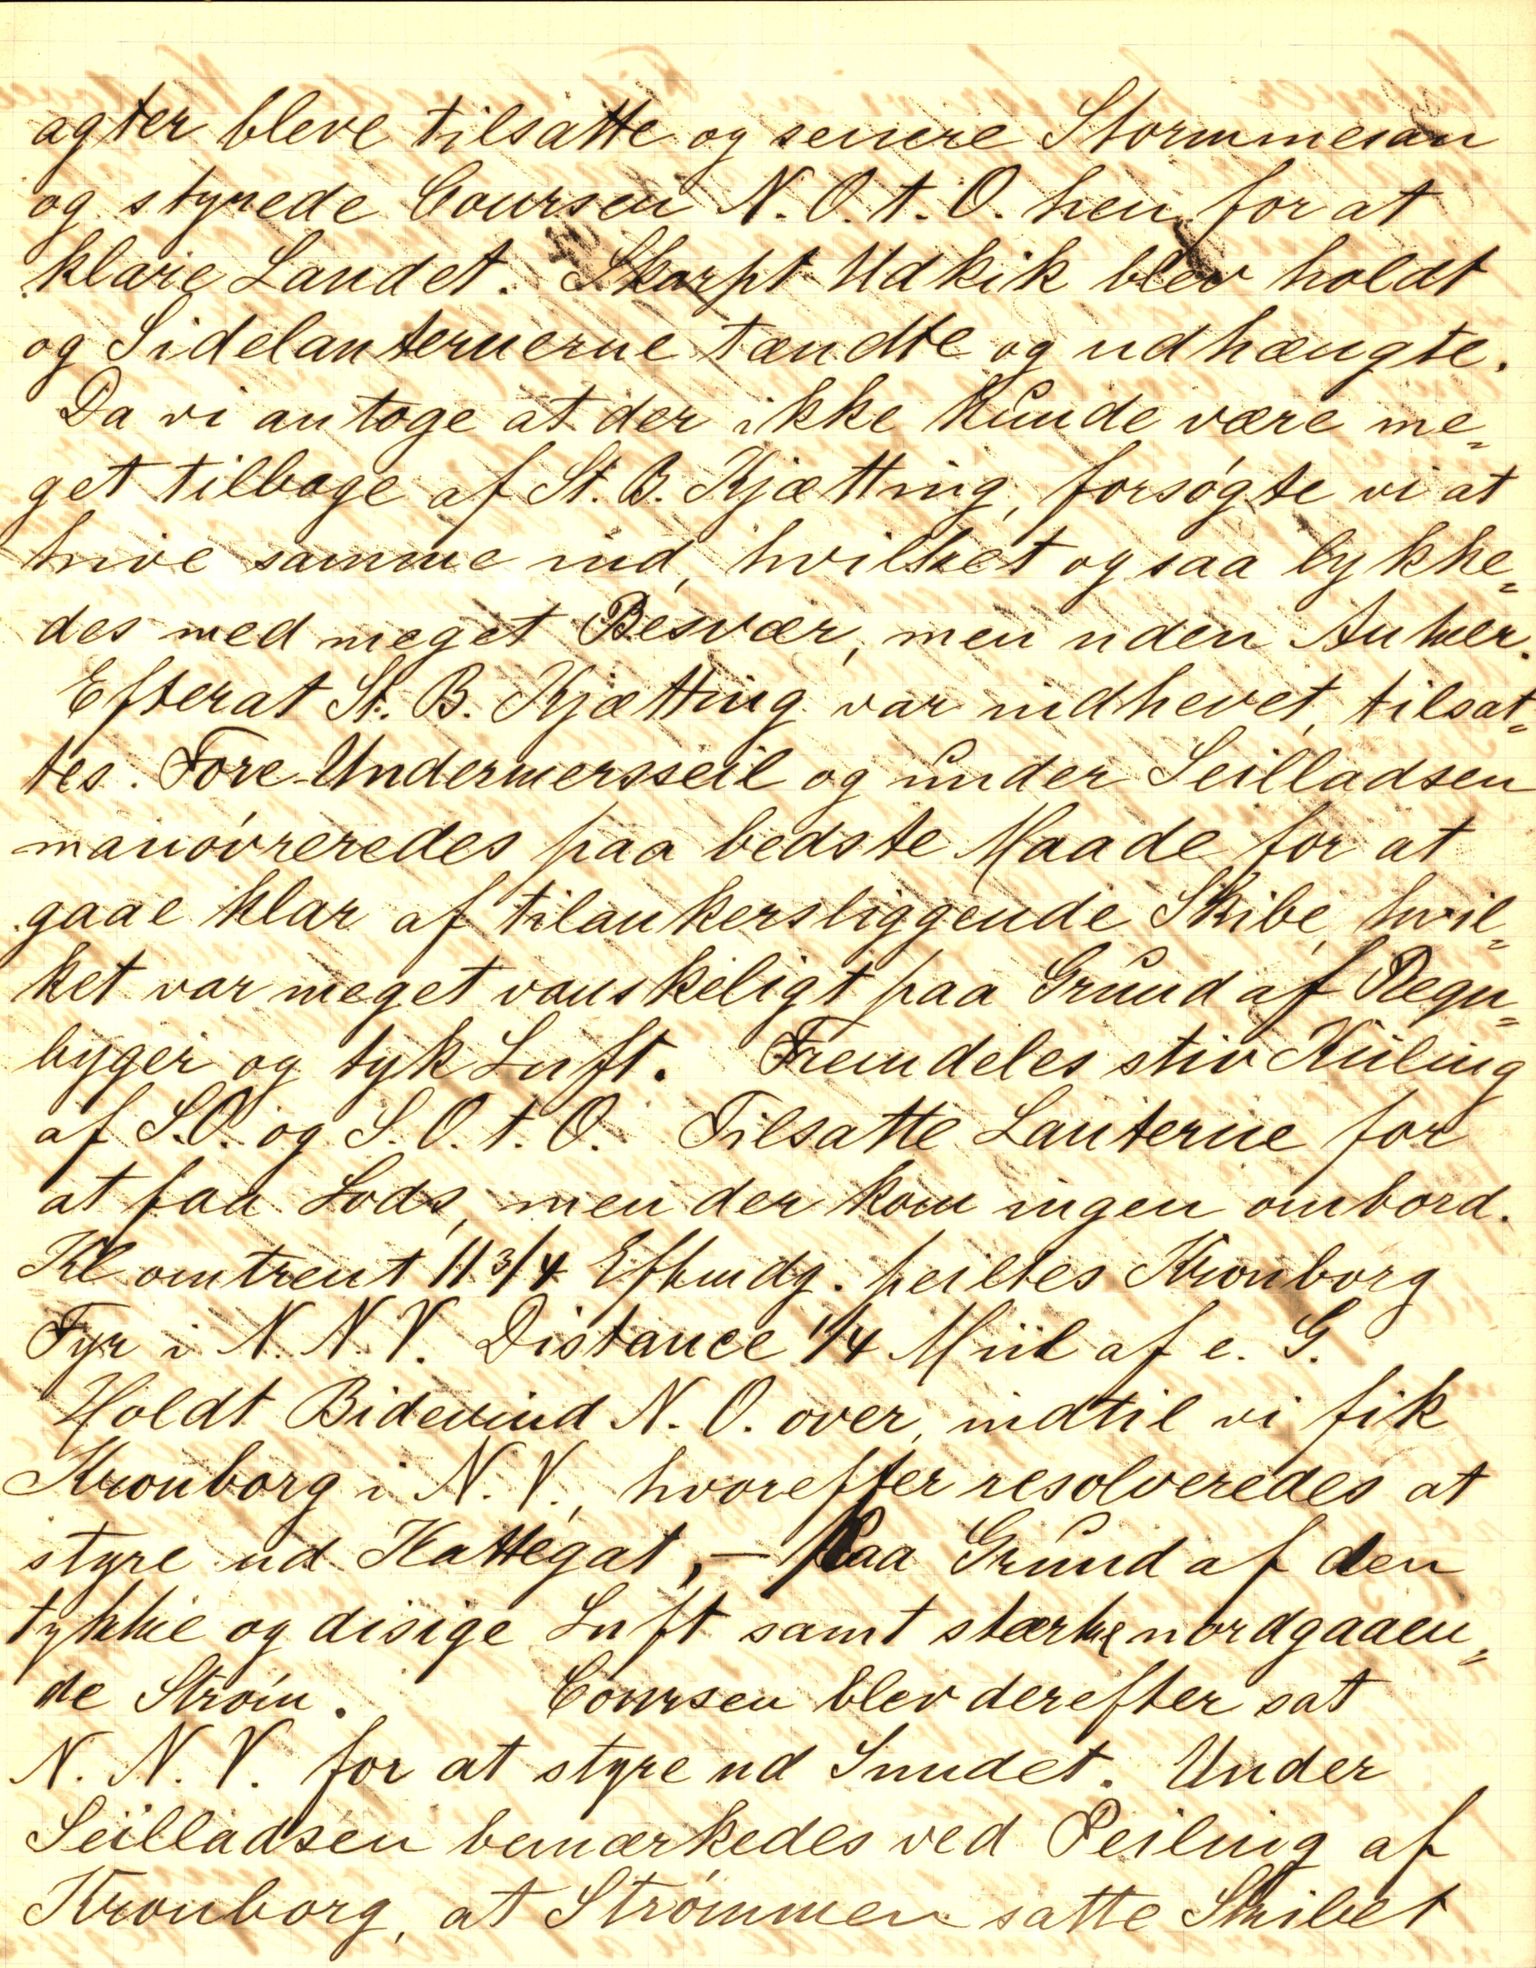 agter bleve tilsatte og senere Stormmesan
og styrede Coursen N. O. t. O. hen for at
klare Landet. Skarpt Udkik blev holdt
og Sidelanternerne tændte og udhængte.
Da vi antoge at der ikke kunde være me„
get tilbage af St. B. Kjætting, forsøgte vi at
hive samme ind, hvilket ogsaa lykke„
des med meget Besvær, men uden Anker.
Efterat St. B. Kjætting var indhevet, tilsat„
tes Fore-Undermersseil og under Seilladsen
manøvreredes paa bedste Maade for at
gaae klar af tilankersliggende Skibe, hvil„
ket var meget vanskeligt paa Grund af Regn„
byger og tyk Luft. Fremdeles stiv Kuling
af S.O. og S. O. t. O. Tilsatte Lanterne for
at faa Lods, men der kom ingen ombord.
Kl omtrent 11 3/4 Eftmdg. peiltes Kronborg
Fyr i N. N. V. Distance 1/4 Miil af e. G.
Holdt Bidevind N. O. over, indtil vi fik
Kronborg i N. V., hvorefter resolveredes at
styre ud Kattegat, — Paa Grund af den
tykke og disige Luft samt stærke nordgaaen„
de Strøm. Coursen blev derefter sat
N. N. V. for at styre ud Sundet. Under
Seilladsen bemærkedes ved Peiling af
Kronborg, at Strømmen satte Skibet